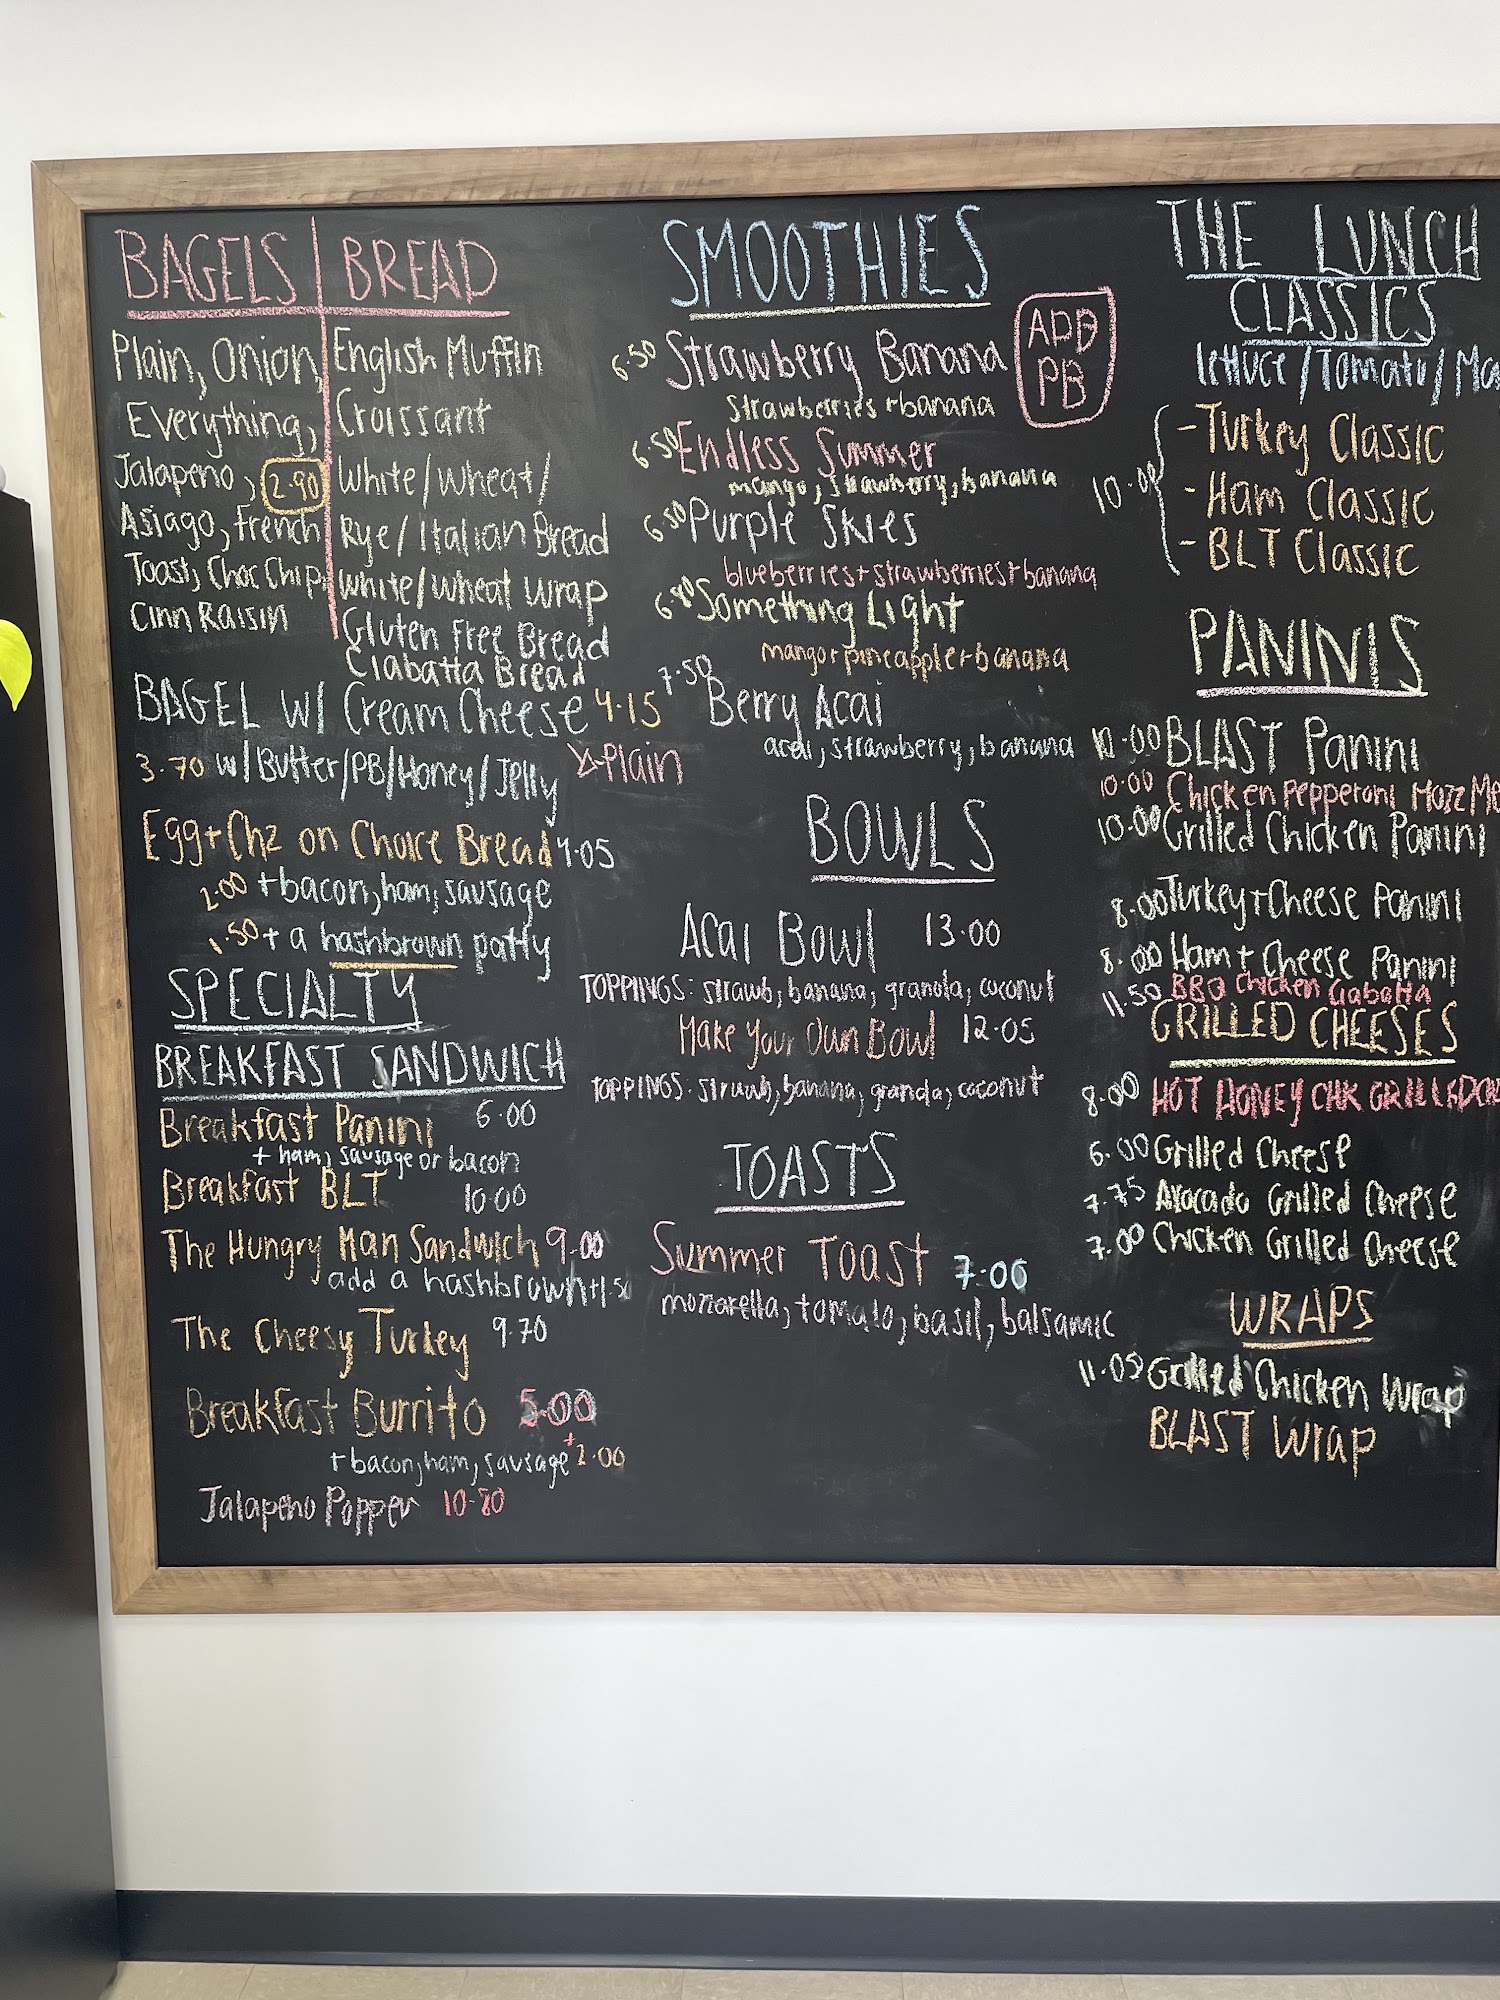 BAGELS | BREAD
Plain, Onion,
Everything,
Jalapeno, 2.90
Asiago, French
Toast, Choc Chip,
Cinn Raisin
English Muffin
Croissant
White/Wheat/
Rye/Italian Bread
White/Wheat Wrap
Gluten Free Bread
Ciabatta Bread
BAGEL W/ Cream Cheese 4.15
Plain
3.70 w/Butter/PB/Honey/Jelly
Egg+Chz on Choice Bread 4.05
2.00 +bacon, ham, sausage
1.50 + a hashbrown patty
SPECIALTY
BREAKFAST SANDWICH
Breakfast Panini 6.00
+ ham, sausage or bacon
Breakfast BLT 10.00
The Hungry Man Sandwich 9.00
add a hashbrown +1.50
The Cheesy Turkey 9.70
Breakfast Burrito 5.00
+bacon, ham, sausage +2.00
Jalapeno Popper 10.80
SMOOTHIES
ADD
PB
6.50 Strawberry Banana
Strawberries + banana
6.50 Endless Summer
mango, strawberry, banana
6.50 Purple Skies
blueberries+strawberries+banana
6.80 Something Light
mango+pineapple+banana
7.50 Berry Acai
acai, strawberry, banana
BOWLS
Acai Bowl 13.00
TOPPINGS: strawb, banana, granola, coconut
Make Your Own Bowl 12.05
TOPPINGS: strawb, banana, granola, coconut
TOASTS
Summer Toast 7.00
mozzarella, tomato, basil, balsamic
THE LUNCH
CLASSICS
lettuce/Tomato/
10.00
- Turkey Classic
- Ham Classic
- BLT Classic
PANINIS
10.00 BLAST Panini
10.00 Chicken Pepperoni Mozz
10.00 Grilled Chicken Panini
8.00 Turkey+Cheese Panini
8.00 Ham+Cheese Panini
11.50 BBQ Chicken Ciabatta
GRILLED CHEESES
8.00 HOT HONEY CHK GRILLED
6.00 Grilled Cheese
7.75 Avocado Grilled Cheese
7.00 Chicken Grilled Cheese
WRAPS
11.05 Grilled Chicken Wrap
BLAST Wrap